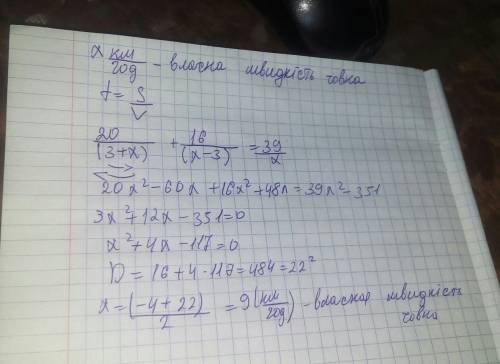 x км/год - власна швидкість човна
t = S/V
20/(3+x) + 16/(x-3) = 39/x
20x² - 60x + 16x² + 48x = 39x² - 351
3x² + 12x - 351 = 0
x² + 4x - 117 = 0
D = 16 + 4·117 = 484 = 22²
x = (-4+22)/2 = 9 (км/год) - власної швидкість
човна